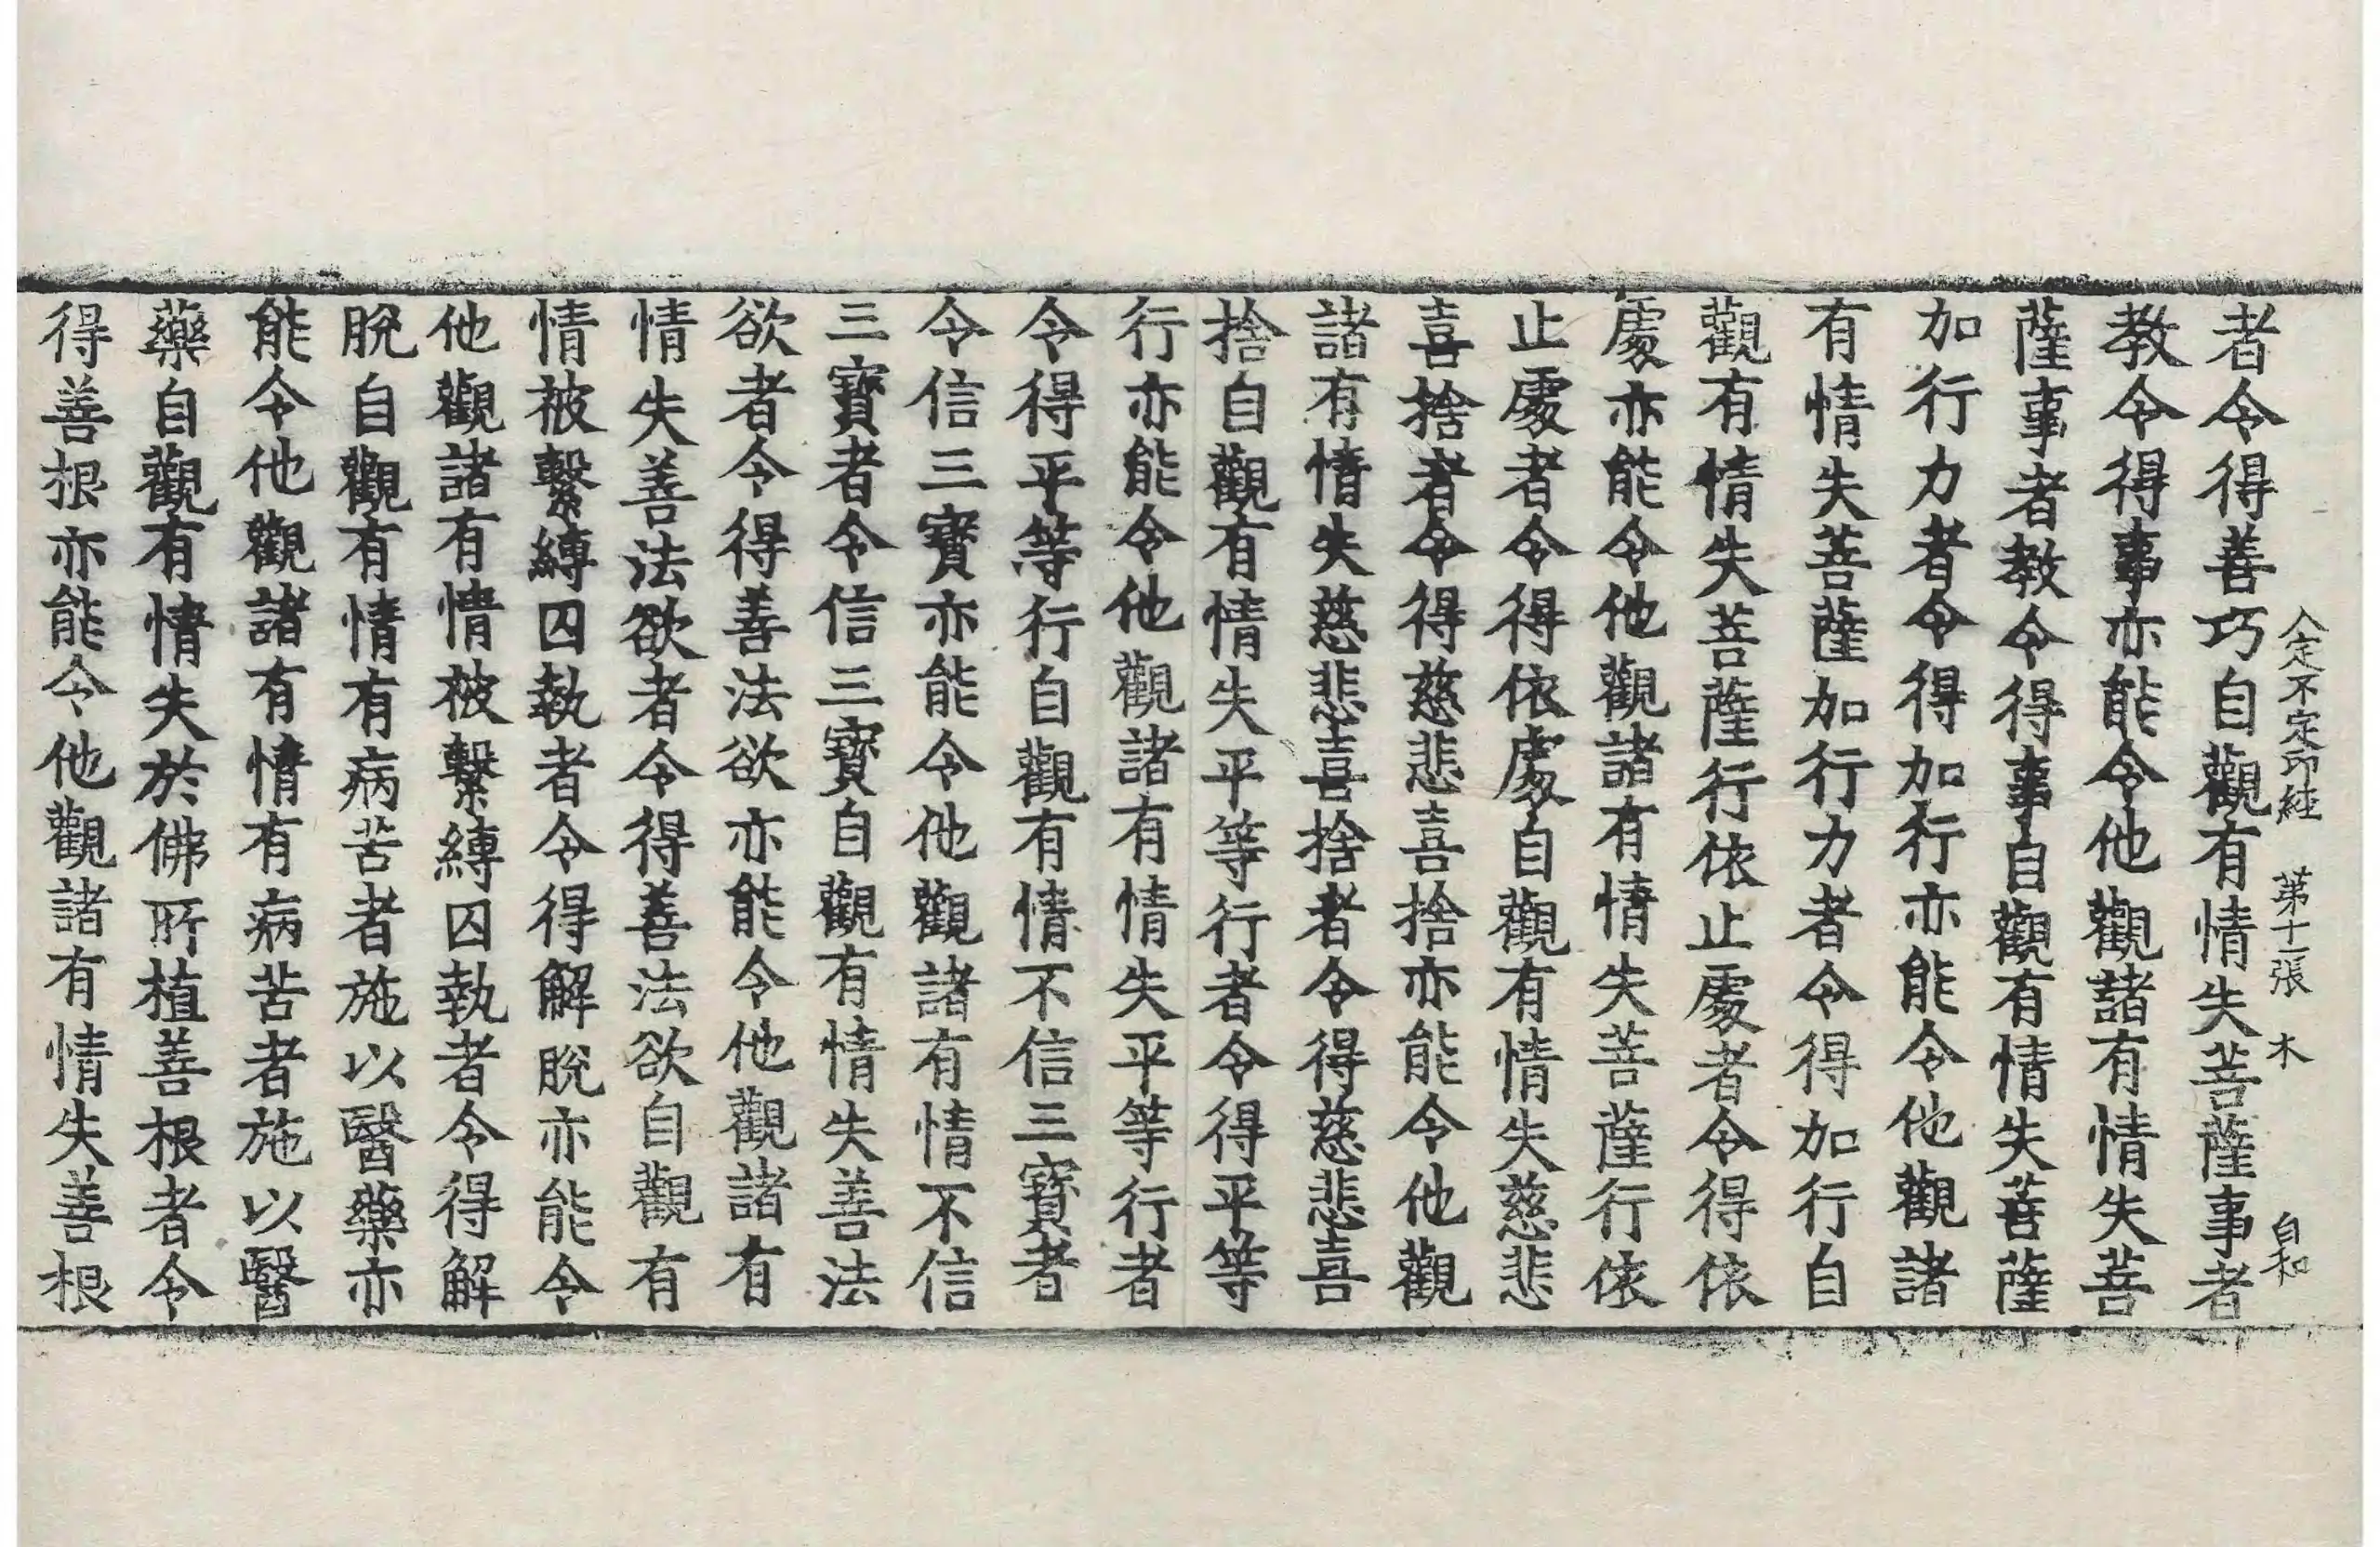 入定不定印經 第十一張 木 自和
者令得善巧自觀有情失菩薩事者
教令得事亦能令他觀諸有情失菩
薩事者教令得事自觀有情失菩薩
加行力者令得加行亦能令他觀諸
有情失菩薩加行力者令得加行自
觀有情失菩薩行依止處者令得依
處亦能令他觀諸有情失菩薩行依
止處者令得依處自觀有情失慈悲
喜捨者令得慈悲喜捨亦能令他觀
諸有情失慈悲喜捨者令得慈悲喜
捨自觀有情失平等行者令得平等
行亦能令他觀諸有情失平等行者
令得平等行自觀有情不信三寶者
令信三寶亦能令他觀諸有情不信
三寶者令信三寶自觀有情失善法
欲者令得善法欲亦能令他觀諸有
情失善法欲者令得善法欲自觀有
情被繫縛囚執者令得解脫亦能令
他觀諸有情被繫縛囚執者令得解
脫自觀有情有病苦者施以醫藥亦
能令他觀諸有情有病苦者施以醫
藥自觀有情失於佛所植善根者令
得善根亦能令他觀諸有情失善根